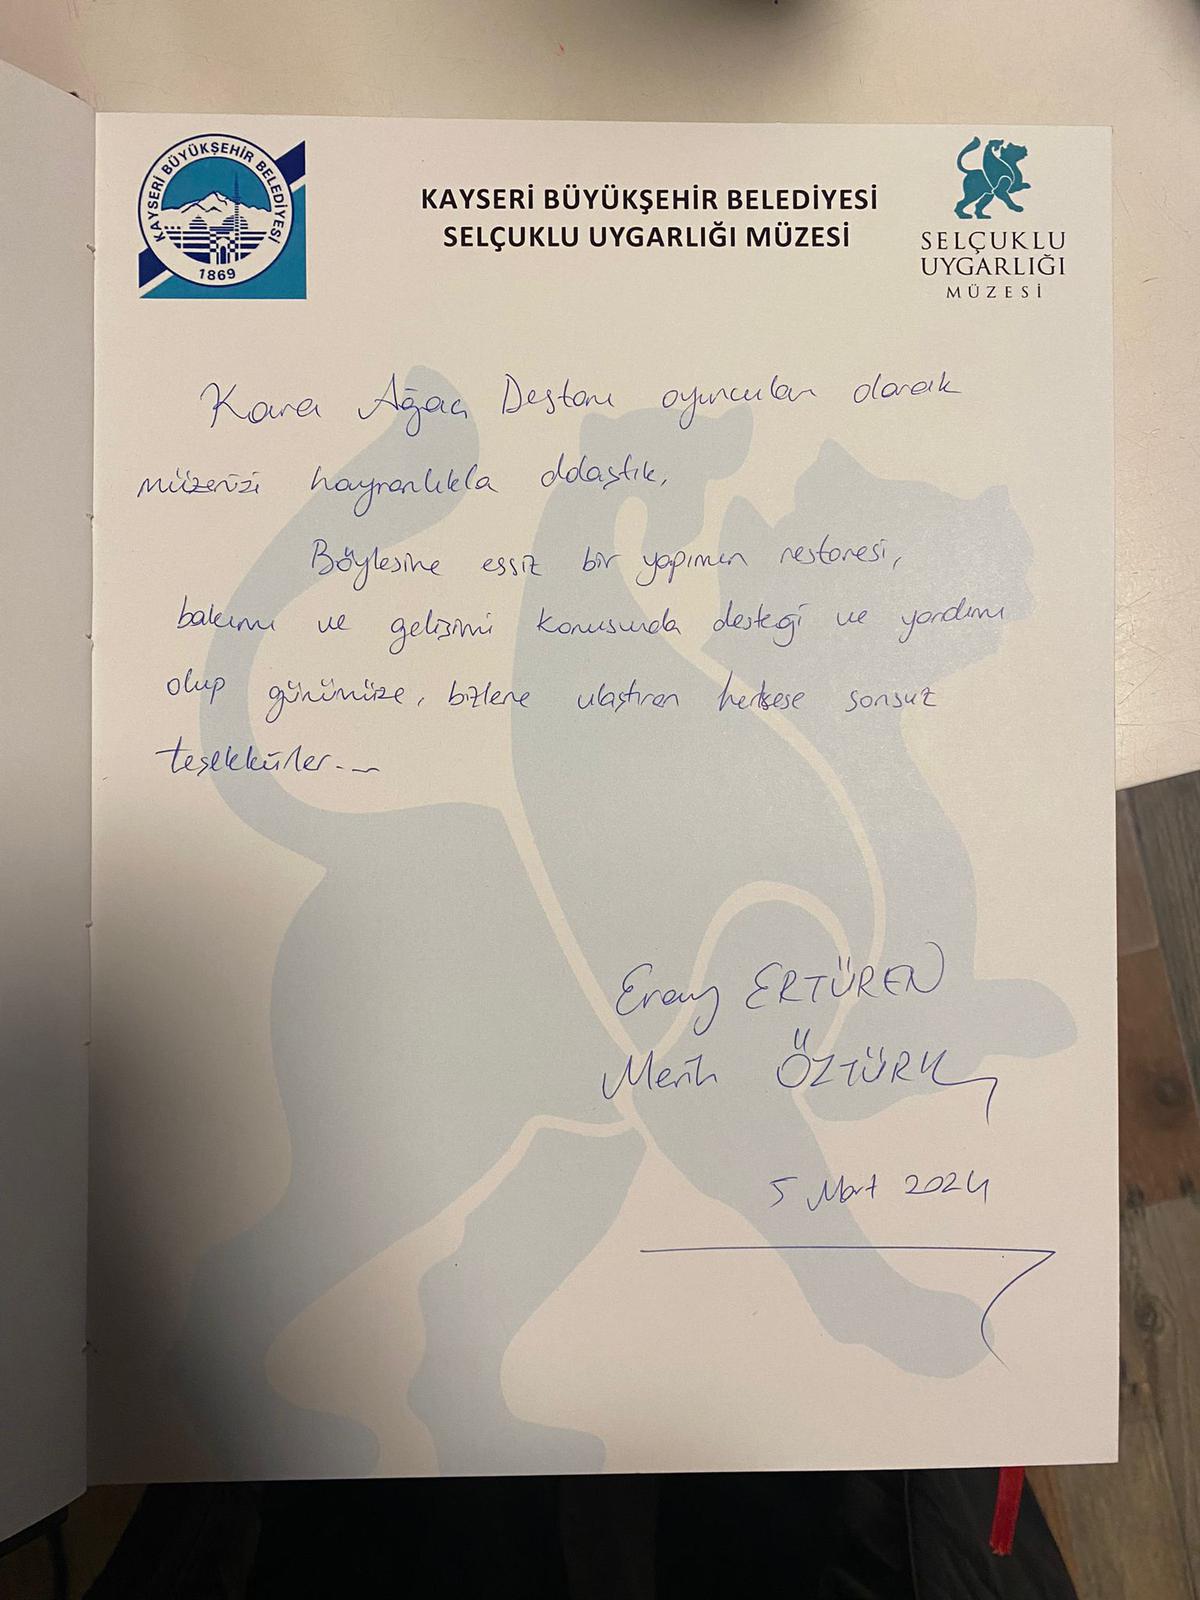 KAYSERİ BÜYÜKŞEHİR BELEDİYESİ
1869
KAYSERİ BÜYÜKŞEHİR BELEDİYESİ
SELÇUKLU UYGARLIĞI MÜZESİ
SELÇUKLU
UYGARLIĞI
MÜZESİ
Kara Ağaç Destanı oyuncuları olarak
müzenizi hayranlıkla dolaştık,
Böylesine eşsiz bir yapının restoresi,
bakımı ve gelişimi konusunda desteği ve yardımı
olup günümüze, bizlere ulaştıran herkese sonsuz
teşekkürler...
Eray ERTÜREN
Merih ÖZTÜRK
5 Mart 2024